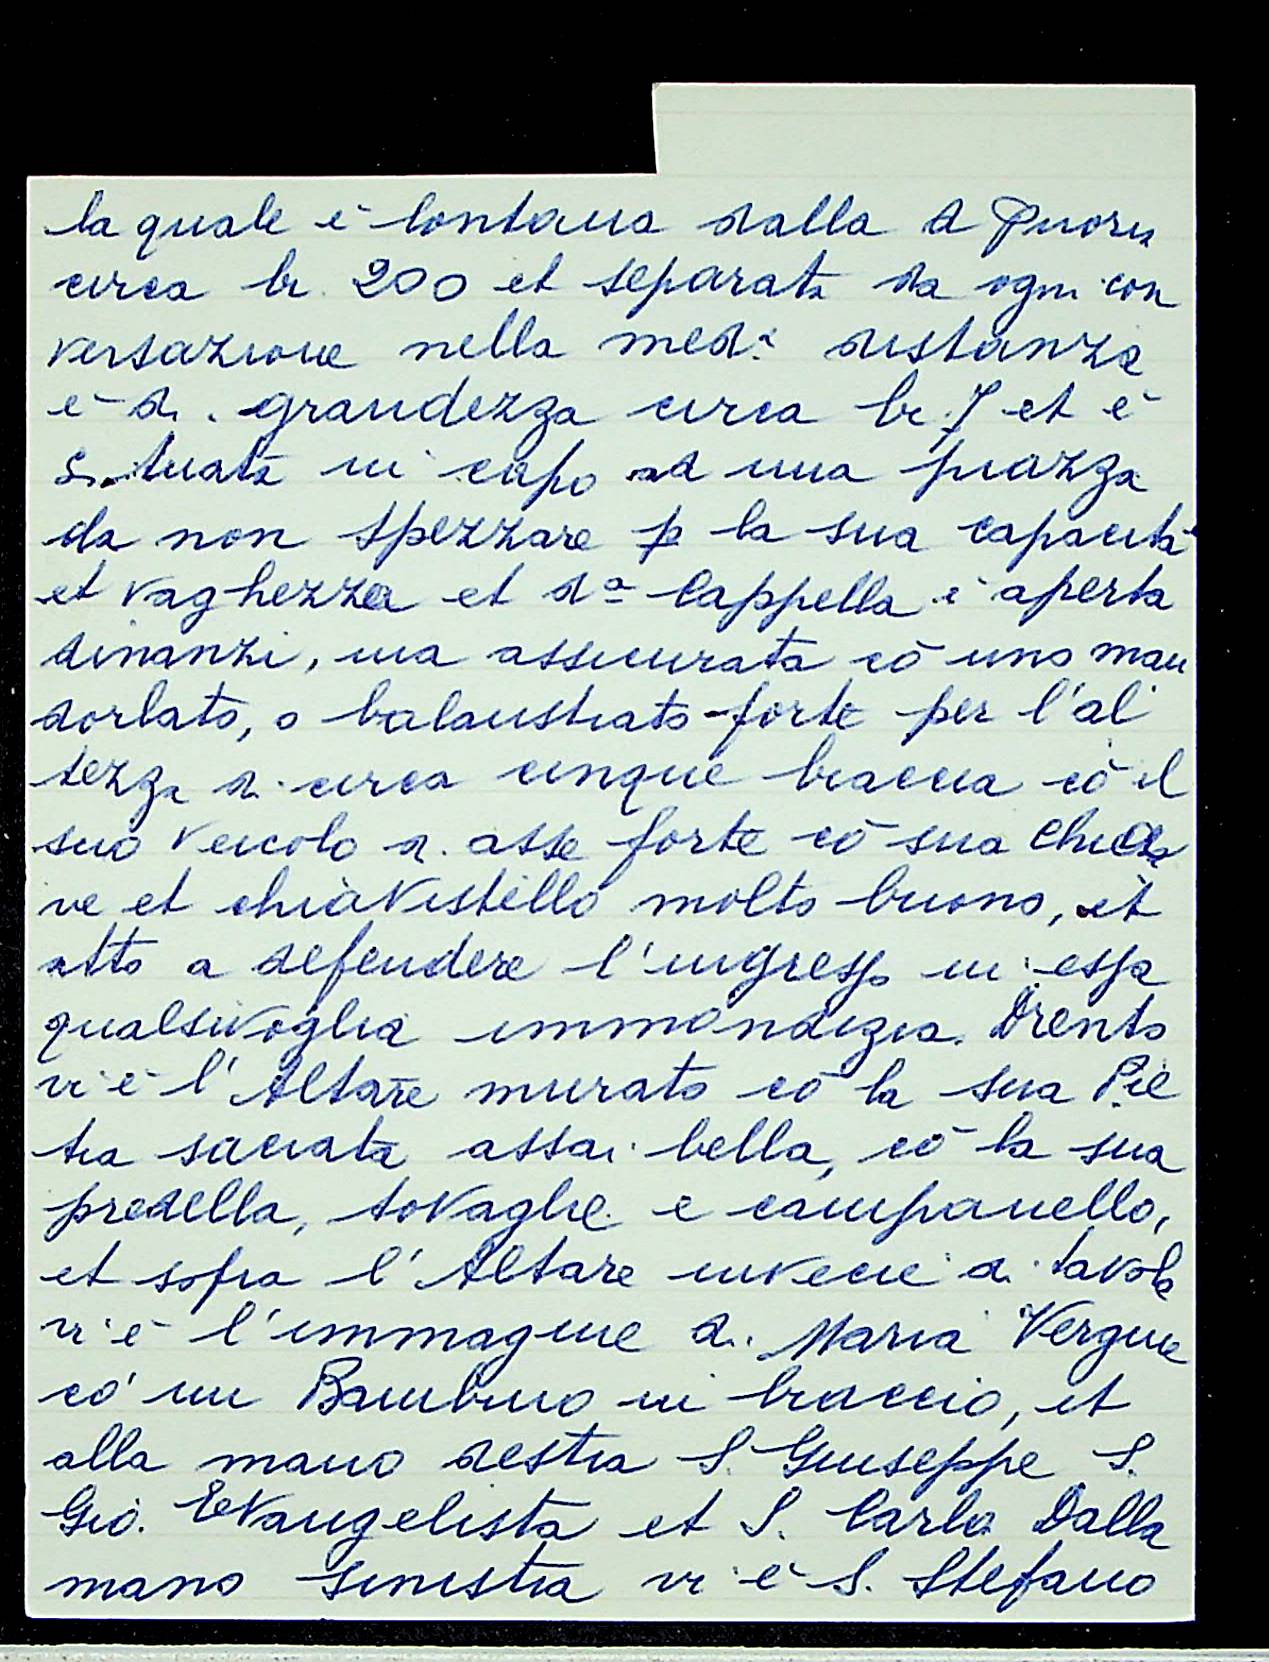 la quale è lontana dalla d
circa br. 200 et separata da ogni con
versazione nella med.ª distanza
è di grandezza circa br. 7 et è
situata in capo ad una piazza
da non spezzare p la sua capacità
et vaghezza et d.ª Cappella è aperta
dinanzi, ma assicurata cō uno man
dorlato, o balaustrato forte per l'al
tezza di circa cinque braccia cō il
suo veicolo di asse forte cō sua chia
ve et chiavistello molto buono, et
atto a defendere l'ingresso in essa
qualsivoglia immondizia. Drento
vi è l'Altare murato cō la sua Pie
tra sacrata assai bella, cō la sua
predella, tovaglie e campanello,
et sopra l'Altare invece di tavola
vi è l'immagine di Maria Vergine
cō un Bambino in braccio, et
alla mano destra S. Giuseppe S.
Giō. Evangelista et S. Carlo Dalla
mano sinistra vi è S. Stefano